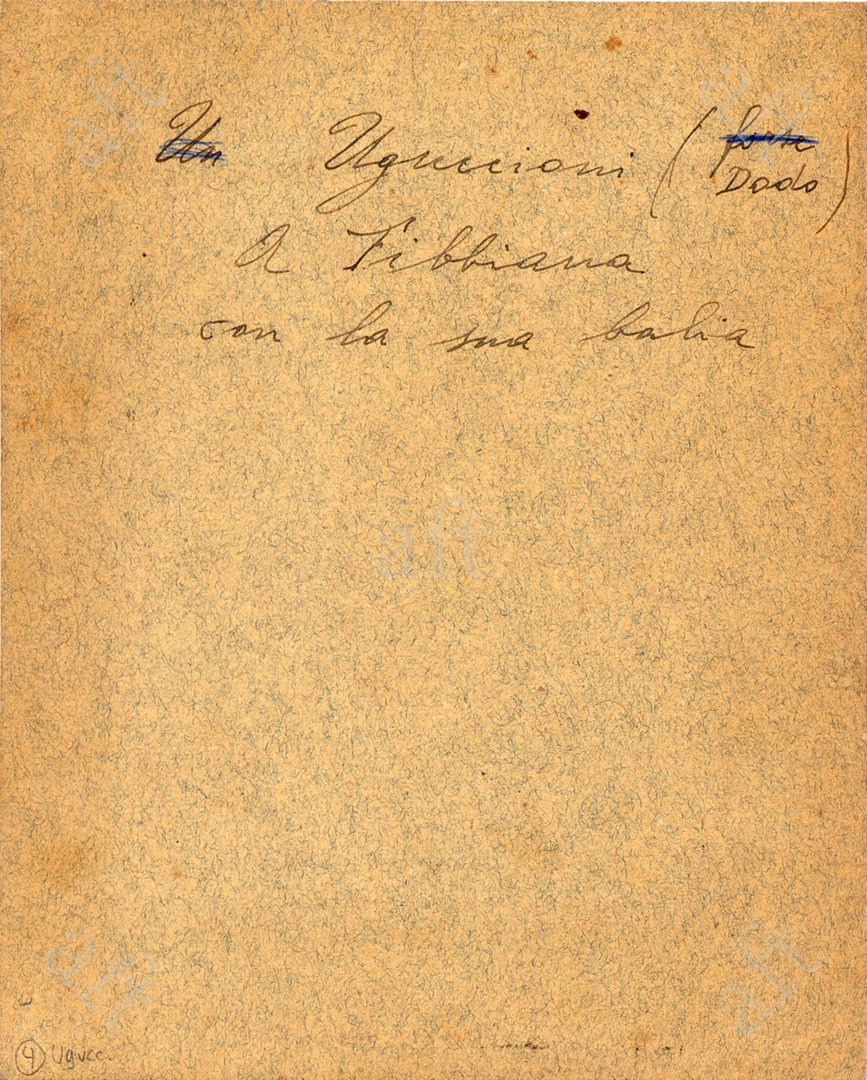 Un Uguccioni (forse
Dado)
A Fibbiana
con la sua balia
aft
aft
aft
aft
aft
4 Ugucc.